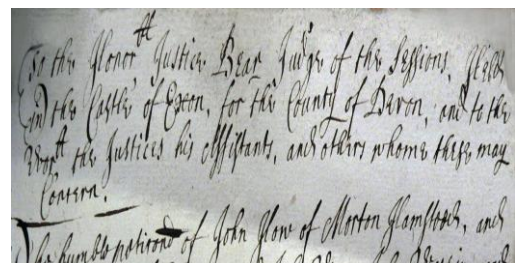 To the Honor^ble Justice Bear Judge of the Sessions, Held
In the Castle of Exon, for the County of Devon, and to the
Wor^ll the Justices his Assistants, and others whome these may
Concern.
The humble peticon of John How of Morton Hamsteed, and